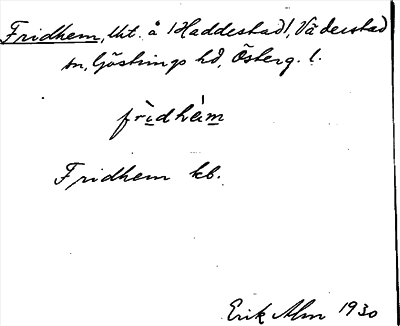 Fridhem, lht. å /Haddestad/, Väderstad
sn, Göstrings hd, Österg. l.
fridhem
Fridhem kb.
Erik Alm 1930